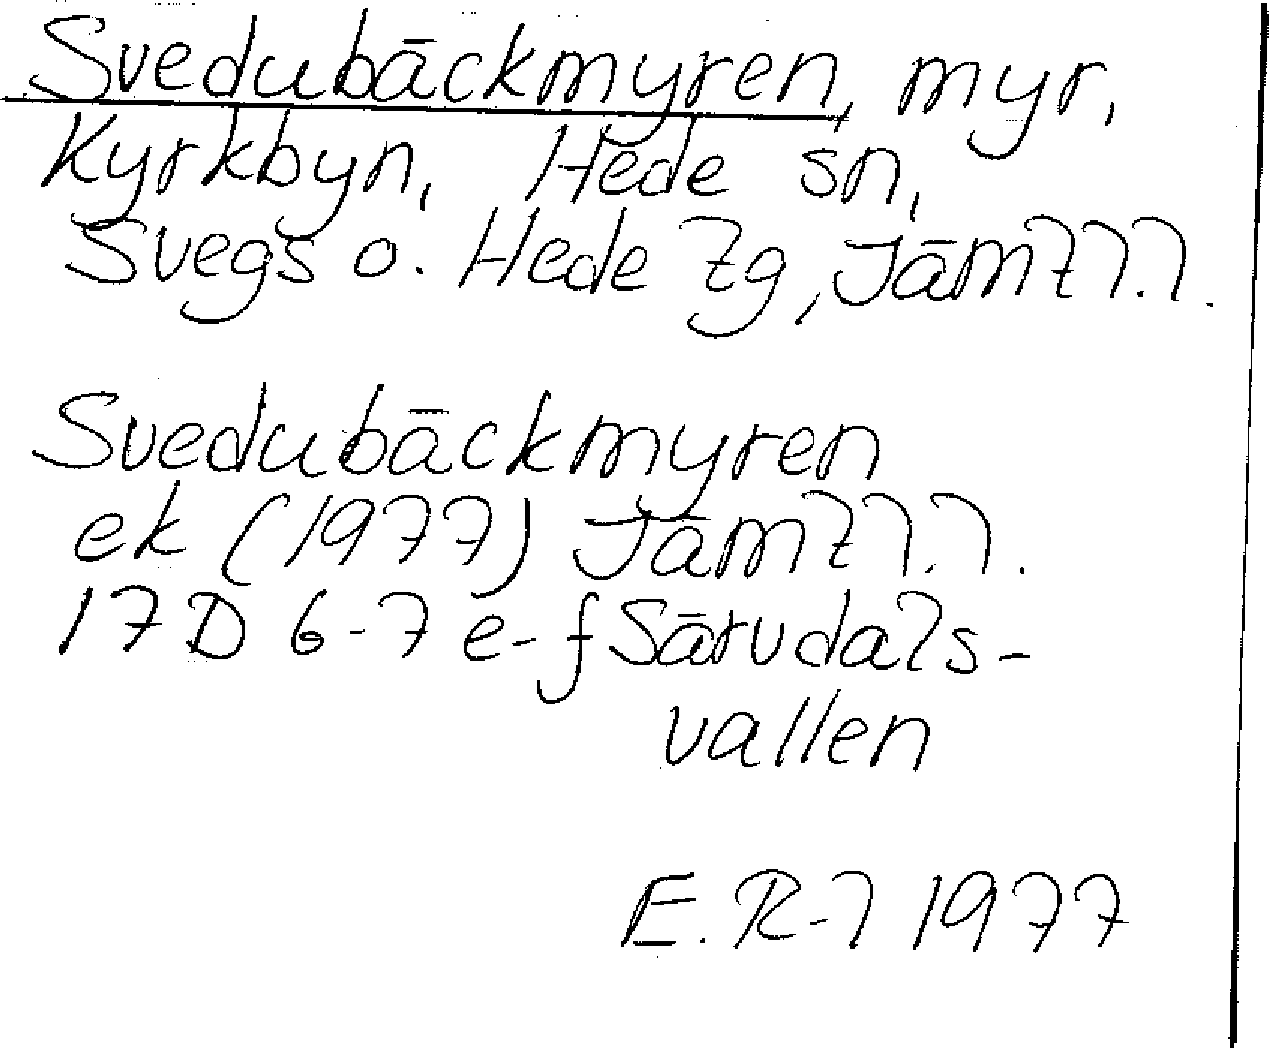 Svedubäckmyren, myr,
Kyrkbyn, Hede sn,
Svegs o. Hede tg, Jämtl.l.
Svedubäckmyren
ek (1977) Jämtl.l.
17D 6-7 e-f Särvdals-
vallen
E. R-l 1977